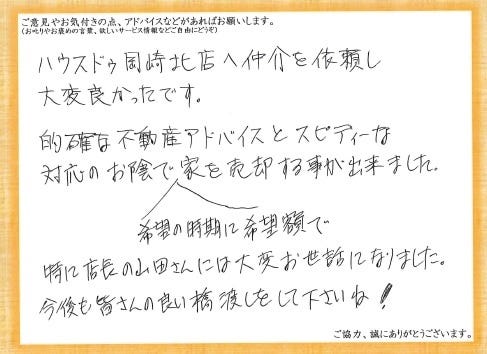 ご意見やお気付きの点、アドバイスなどがあればお願いします。
(お叱りやお褒めの言葉、欲しいサービス情報などご自由にどうぞ)
ハウスドゥ岡崎北店へ仲介を依頼し
大変良かったです。
的確な不動産アドバイスとスピディーな
対応のお陰で家を売却する事が出来ました。
希望の時期に希望額で
特に店長の山田さんには大変お世話になりました。
今後も皆さんの良い橋渡しをして下さいね!
ご協力、誠にありがとうございます。